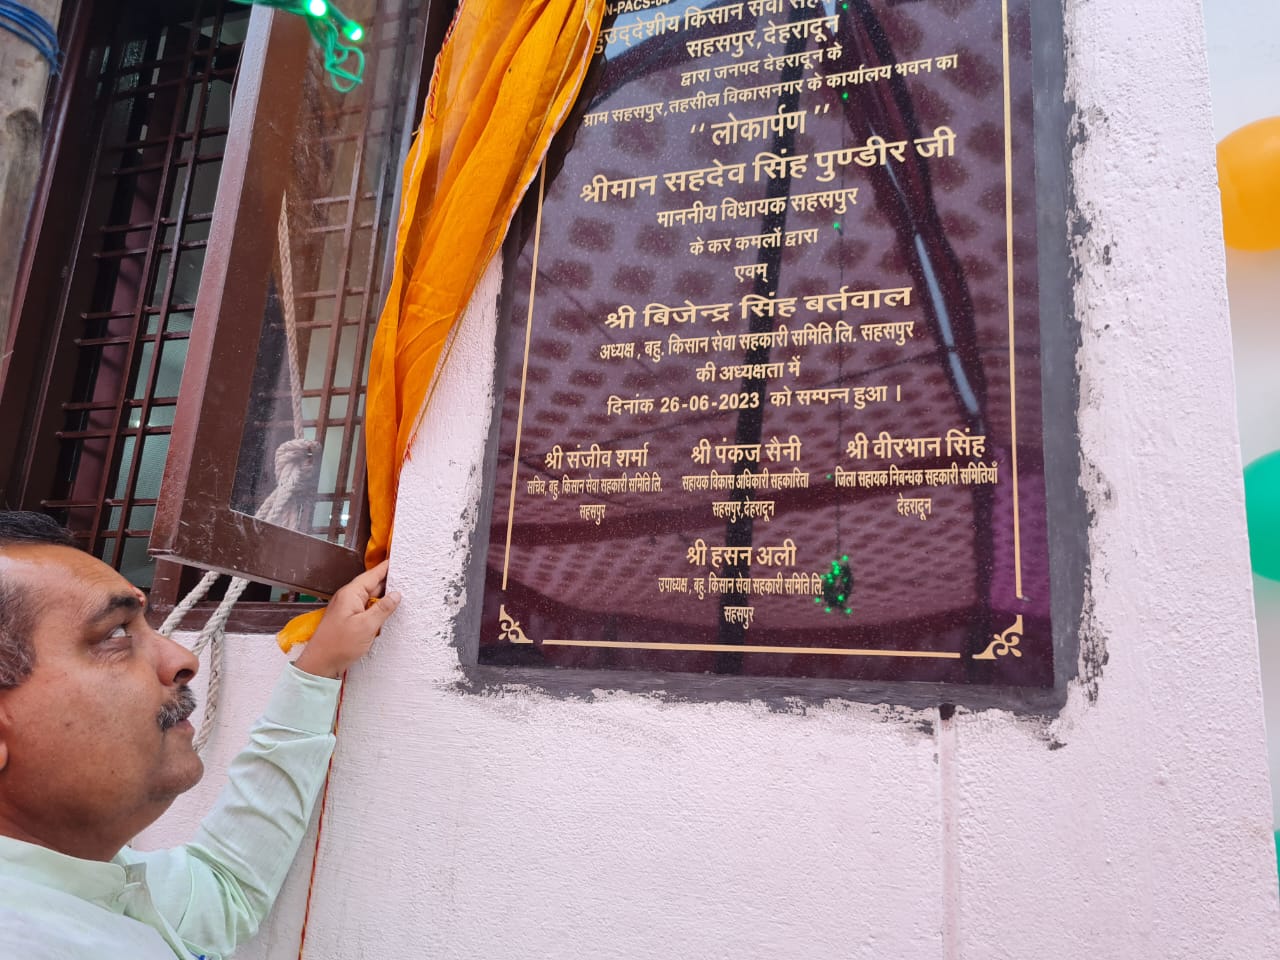 N-PACS-
किसान सेवा
सहसपुर,देहरादून
द्वारा जनपद देहरादून के
ग्राम सहसपुर,तहसील विकासनगर के कार्यालय भवन का
‘‘लोकार्पण’’
श्रीमान सहदेव सिंह पुण्डीर जी
माननीय विधायक सहसपुर
के कर कमलों द्वारा
एवम्
श्री बिजेन्द्र सिंह बर्तवाल
अध्यक्ष , बहु. किसान सेवा सहकारी समिति लि. सहसपुर
की अध्यक्षता में
दिनांक 26-06-2023 को सम्पन्न हुआ ।
श्री संजीव शर्मा
सचिव, बहु. किसान सेवा सहकारी समिति लि.
सहसपुर
श्री पंकज सैनी
सहायक विकास अधिकारी सहकारिता
सहसपुर,देहरादून
श्री वीरभान सिंह
जिला सहायक निबन्धक सहकारी समितियाँ
देहरादून
श्री हसन अली
उपाध्यक्ष , बहु. किसान सेवा सहकारी समिति लि.
सहसपुर